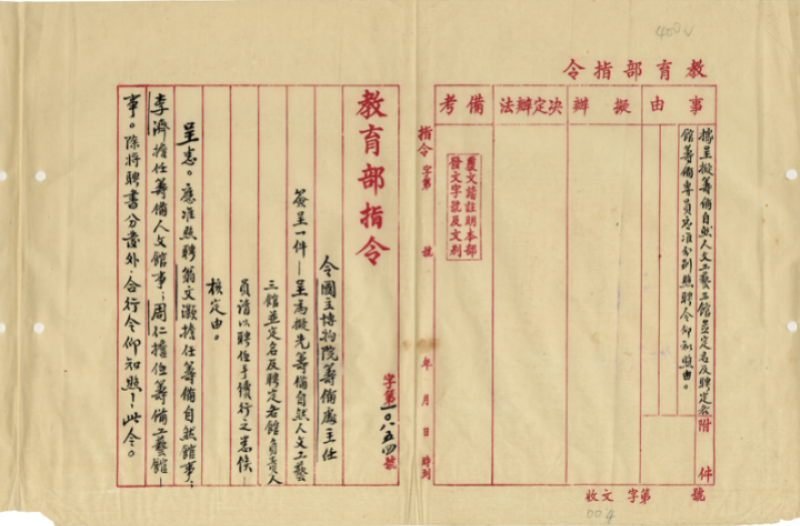 教育部指令
事由
擬辦
決定辦法
備考
據呈擬籌備自然人文工藝三館並定名及聘定各
館籌備專員應准分別照聘令仰知照由。
附件
覆文請註明本部
發文字號及文別
收文 字第 號
指令 字第 號 年 月 日 時到
教育部指令
字第一〇八五四號
令國立博物院籌備處主任
簽呈一件—呈為擬先籌備自然人文工藝
三館並定名及聘定各館負責人
員請以聘任手續行之悉候—
核定由。
呈悉。應准照聘翁文灝擔任籌備自然館事;
李濟擔任籌備人文館事;周仁擔任籌備工藝館—
事。除將聘書分發外,合行令仰知照!此令。